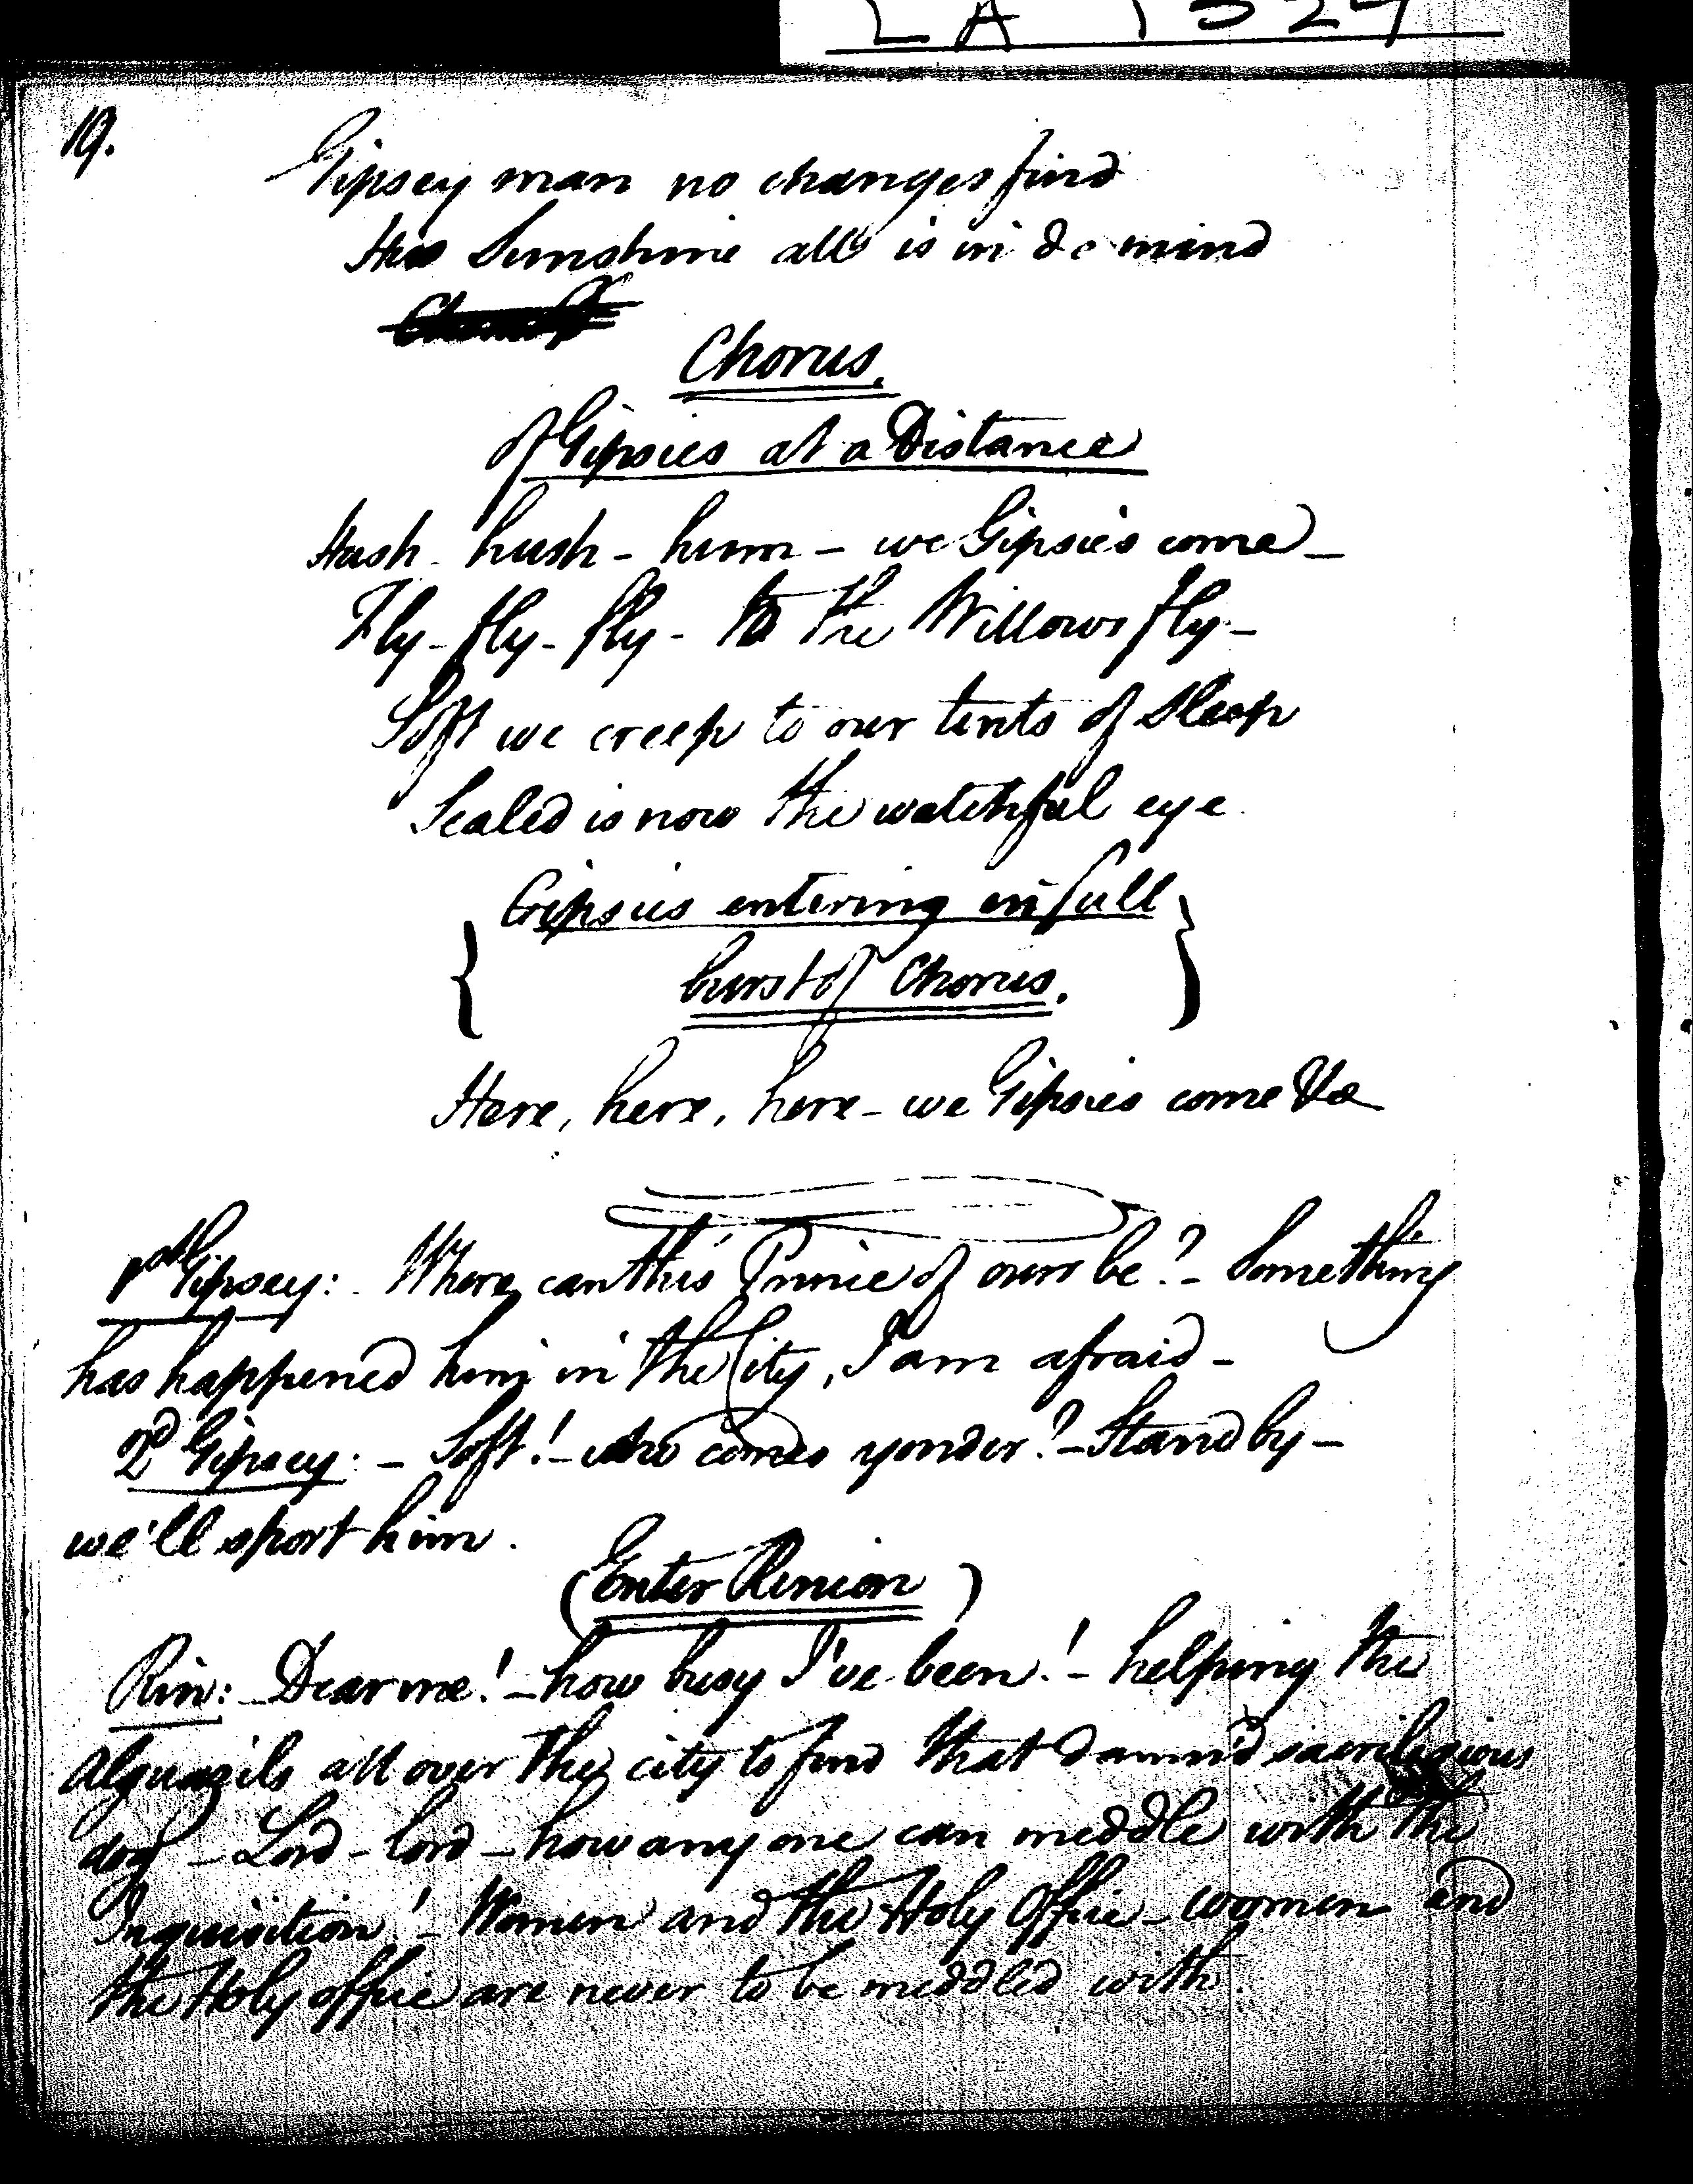 LA 1324
19.
Gipsey man no changes find
His Sunshine all is in de mind
Chorus.
Of Gipsies at a Distance
Hush - hush - hum - we Gipsies come -
Fly - fly - fly - to the Willows fly -
Soft we creep to our tents of sleep
Sealed is now the watchful eye
{ Gipsies entering in full
burst of Chorus. }
Here, here, here - we Gipsies come &c
1st Gipsey: - Where can this Prince of ours be? - Something
has happened him in the City, I am afraid -
2d Gipsey: - Soft! - who comes yonder? - Stand by -
we'll sport him.
(Enter Rinion)
Rin: - Dear me! - how busy I've been! - helping the
Alguazils all over the city to find that damn'd sacrilegious
dog - Lord - lord - how any one can meddle with the
Inquisition! - Women and the Holy Office - women and
the Holy office are never to be meddled with.